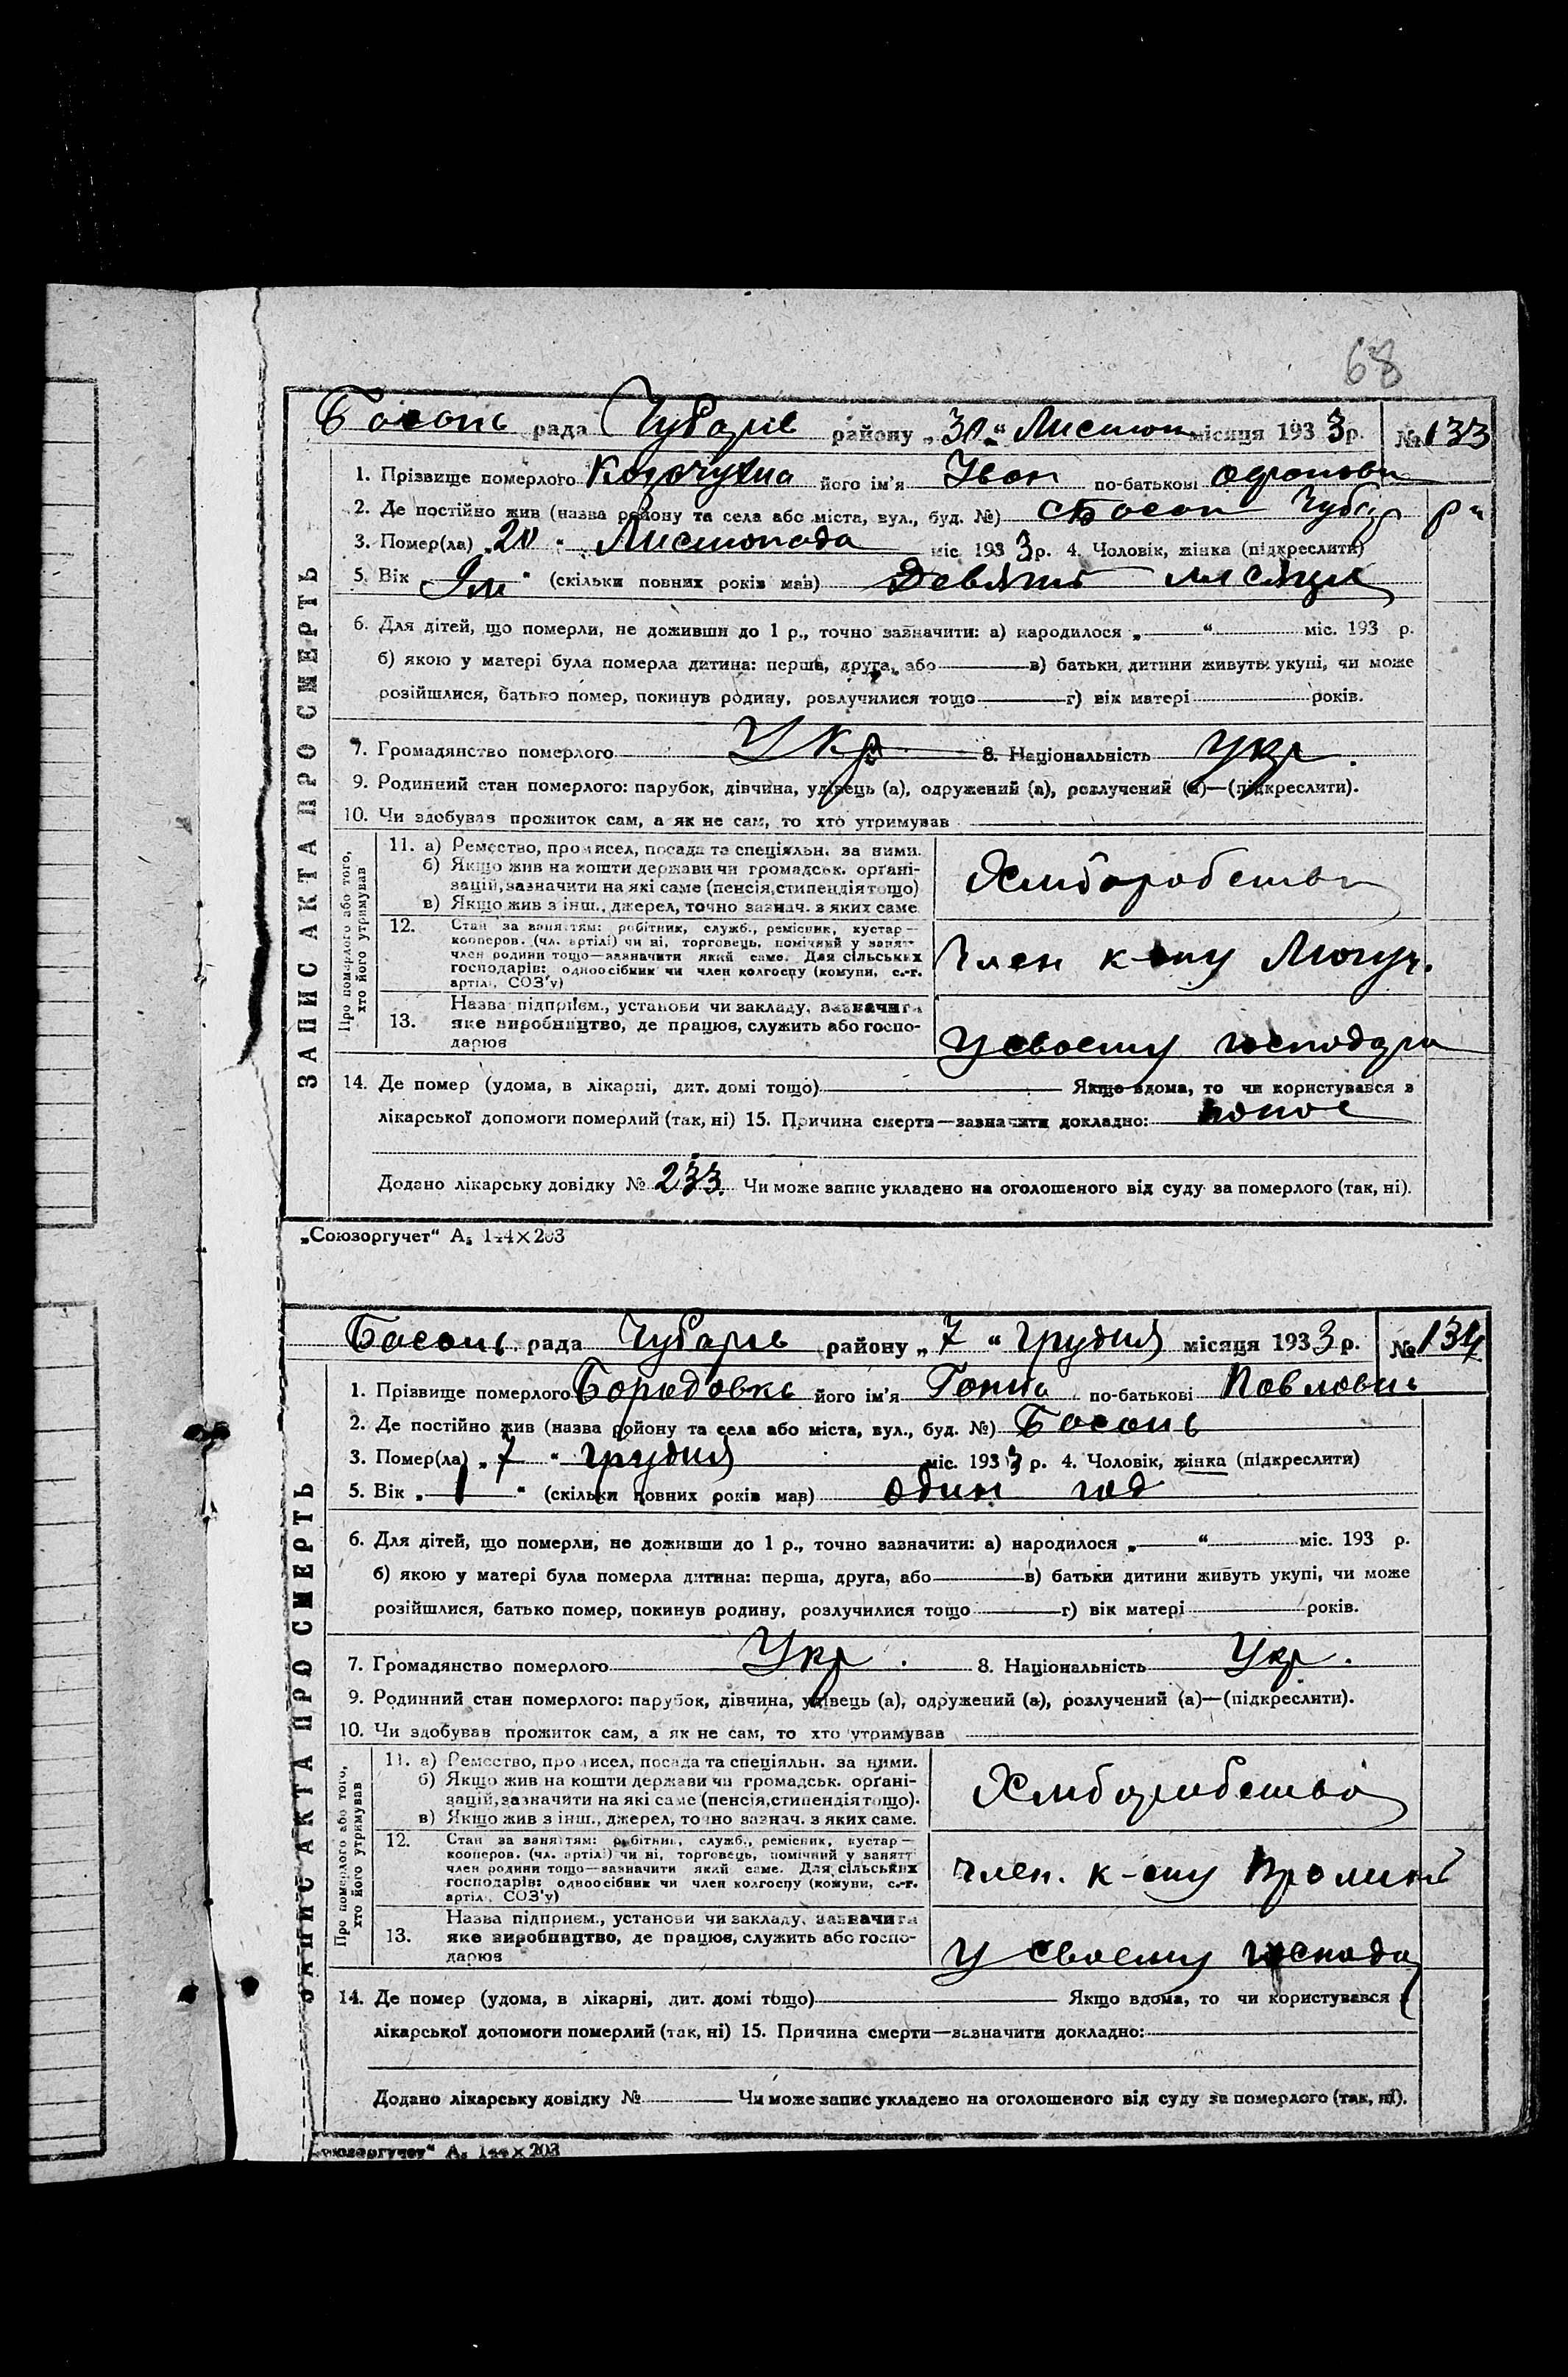 68
Басань рада Чубарів району „30“ Листоп місяця 1933 р. № 133
1. Прізвище померлого його ім'я Іван по-батькові
2. Де постійно жив (назва району та села або міста, вул., буд. №) с Босан Чубар р н
3. Помер(ла) „20“ Листопада міс. 1933 р. 4. Чоловік, жінка (підкреслити)
5. Вік „9 м“ (скільки повних років мав) Девять місяця
6. Для дітей, що померли, не доживши до 1 р., точно зазначити: а) народилося „ “ міс. 193 р.
б) якою у матері була померла дитина: перша, друга, або в) батьки дитини живуть укупі, чи може
розійшлися, батько помер, покинув родину, розлучилися тощо г) вік матері років.
7. Громадянство померлого Укр 8. Національність Укр.
9. Родинний стан померлого: парубок, дівчина, удівець (а), одружений (а), розлучений (а)—(підкреслити).
10. Чи здобував прожиток сам, а як не сам, то хто утримував
ЗАПИС АКТА ПРО СМЕРТЬ
Про померлого або того,
хто його утримував
11. а) Ремество, промисел, посада та спеціяльн. за ними.
б) Якщо жив на кошти держави чи громадськ. органі-
зацій, зазначити на які саме (пенсія, стипендія тощо)
в) Якщо жив з інш., джерел, точно зазнач. з яких саме
Хлиборобство
12. Стан за заняттям: робітник, служб., ремісник, кустар—
кооперов. (чл. артілі) чи ні, торговець, помічний у занятт
член родини тощо—зазначити який саме. Для сільських
господарів: одноосібник чи член колгоспу (комуни, с.-г.
артілі, СОЗ'у)
Член к-спу Могуч.
13. Назва підприєм., установи чи закладу, зазначити
яке виробництво, де працює, служить або госпо-
дарює
У своєму господар
14. Де помер (удома, в лікарні, дит. домі тощо) Якщо вдома, то чи користувався в
лікарської допомоги померлий (так, ні) 15. Причина смерти—зазначити докладно: понос
Додано лікарську довідку № 233. Чи може запис укладено на оголошеного від суду за померлого (так, ні).
„Союзоргучет“ А₅ 144×203
Басань рада Чубарів району „7“ Грудня місяця 1933 р. № 134
1. Прізвище померлого його ім'я Ганна по-батькові Павловн
2. Де постійно жив (назва району та села або міста, вул., буд. №) Босань
3. Помер(ла) „7“ Грудня міс. 1933 р. 4. Чоловік, жінка (підкреслити)
5. Вік „1“ (скільки повних років мав) Один год
6. Для дітей, що померли, не доживши до 1 р., точно зазначити: а) народилося „ “ міс. 193 р.
б) якою у матері була померла дитина: перша, друга, або в) батьки дитини живуть укупі, чи може
розійшлися, батько помер, покинув родину, розлучилися тощо г) вік матері років.
7. Громадянство померлого Укр. 8. Національність Укр.
9. Родинний стан померлого: парубок, дівчина, удівець (а), одружений (а), розлучений (а)—(підкреслити).
10. Чи здобував прожиток сам, а як не сам, то хто утримував
ЗАПИС АКТА ПРО СМЕРТЬ
Про померлого або того,
хто його утримував
11. а) Ремество, промисел, посада та спеціяльн. за ними.
б) Якщо жив на кошти держави чи громадськ. органі-
зацій, зазначити на які саме (пенсія, стипендія тощо).
в) Якщо жив з інш., джерел, точно зазнач. з яких саме.
Хлиборобство
12. Стан за заняттям: робітник, служб., ремісник, кустар—
кооперов. (чл. артілі) чи ні, торговець, помічний у занятт
член родини тощо—зазначити який саме. Для сільських
господарів: одноосібник чи член колгоспу (комуни, с.-г.
артілі, СОЗ'у)
член. к-спу Промінь
13. Назва підприєм., установи чи закладу, зазначити
яке виробництво, де працює, служить або госпо-
дарює
У своєму господар
14. Де помер (удома, в лікарні, дит. домі тощо) Якщо вдома, то чи користувався в
лікарської допомоги померлий (так, ні) 15. Причина смерти—зазначити докладно:
Додано лікарську довідку № Чи може запис укладено на оголошеного від суду за померлого (так, ні).
„Союзоргучет“ А₅ 144×203